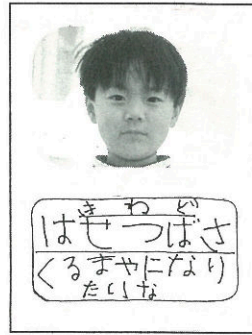 きわど
はせつばさ
くるまやになり
たいな